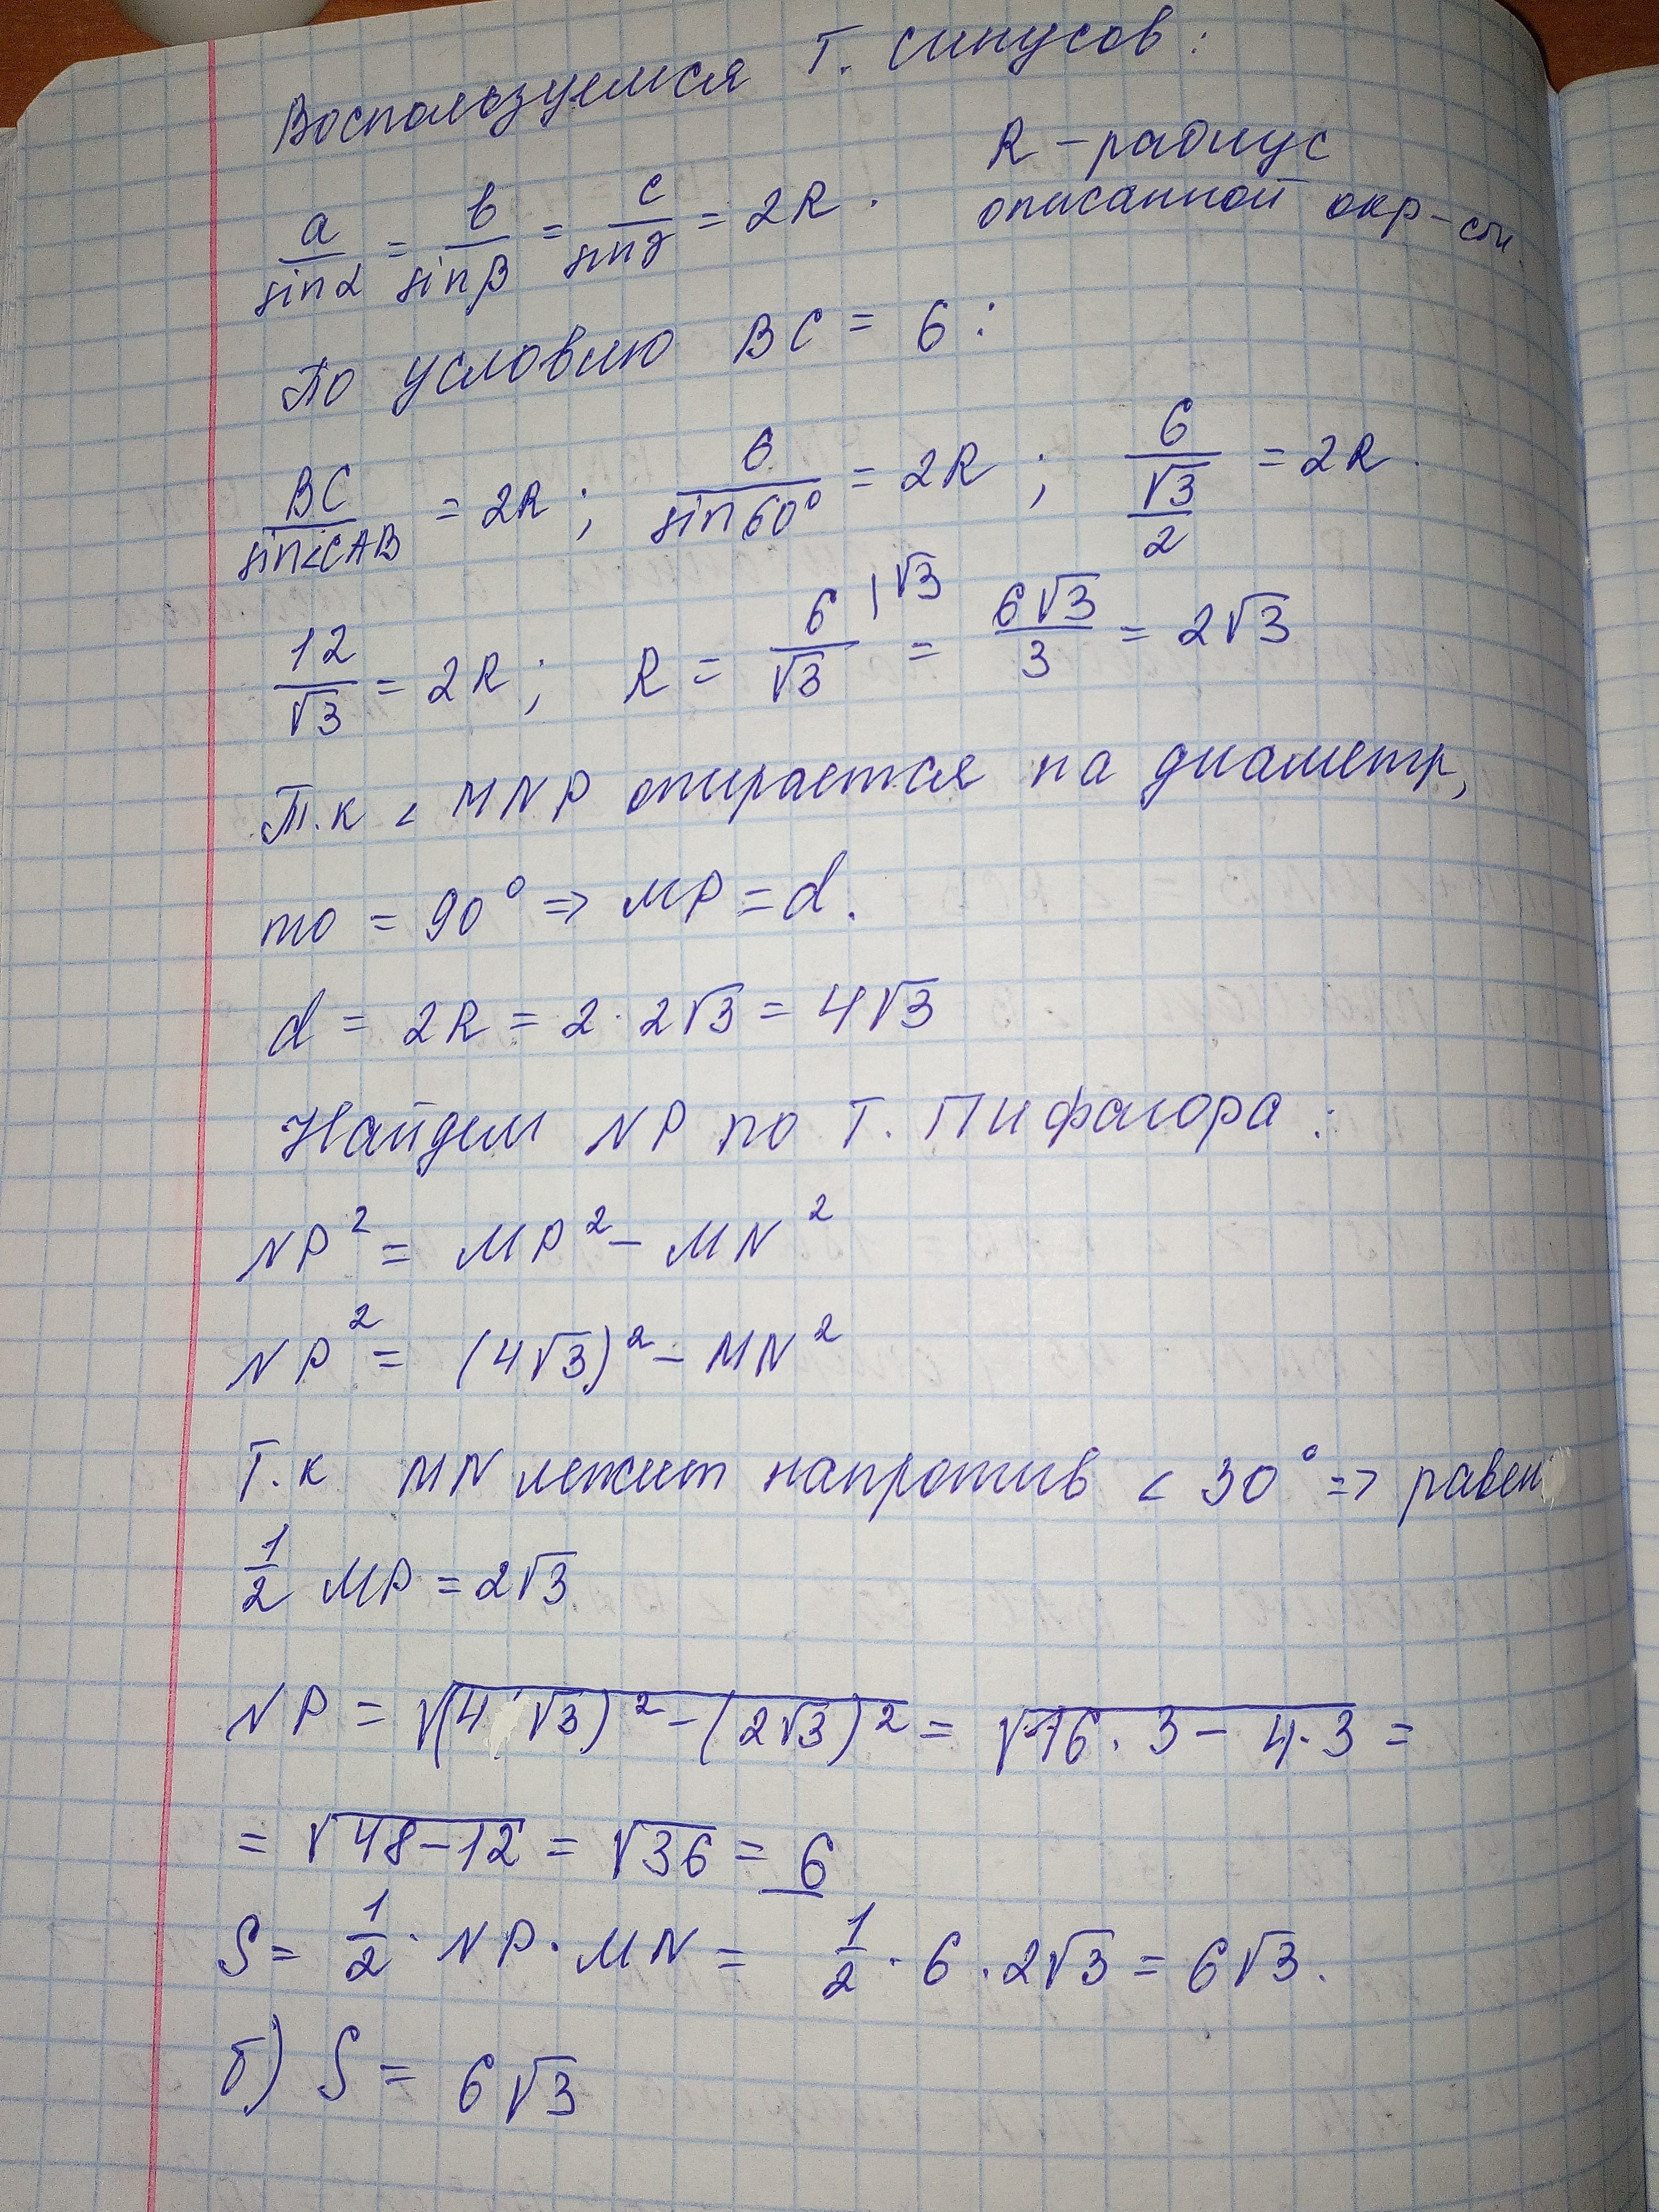 Воспользуемся Т. синусов:
a/sinα = b/sinβ = c/sinγ = 2R. R - радиус
описанной окр-сти.
По условию BC = 6:
BC/sin<CAB = 2R; 6/sin60° = 2R; 6/(√3/2) = 2R.
12/√3 = 2R; R = 6/√3 |√3 = 6√3/3 = 2√3
Т.к < MNP опирается на диаметр,
то = 90° => MP = d.
d = 2R = 2·2√3 = 4√3
Найдем NP по Т. Пифагора:
NP² = MP² - MN²
NP² = (4√3)² - MN²
Т.к MN лежит напротив < 30° => равен
1/2 MP = 2√3
NP = √((4√3)² - (2√3)²) = √(16·3 - 4·3) =
= √(48-12) = √36 = 6
S = 1/2 · NP · MN = 1/2 · 6 · 2√3 = 6√3.
б) S = 6√3